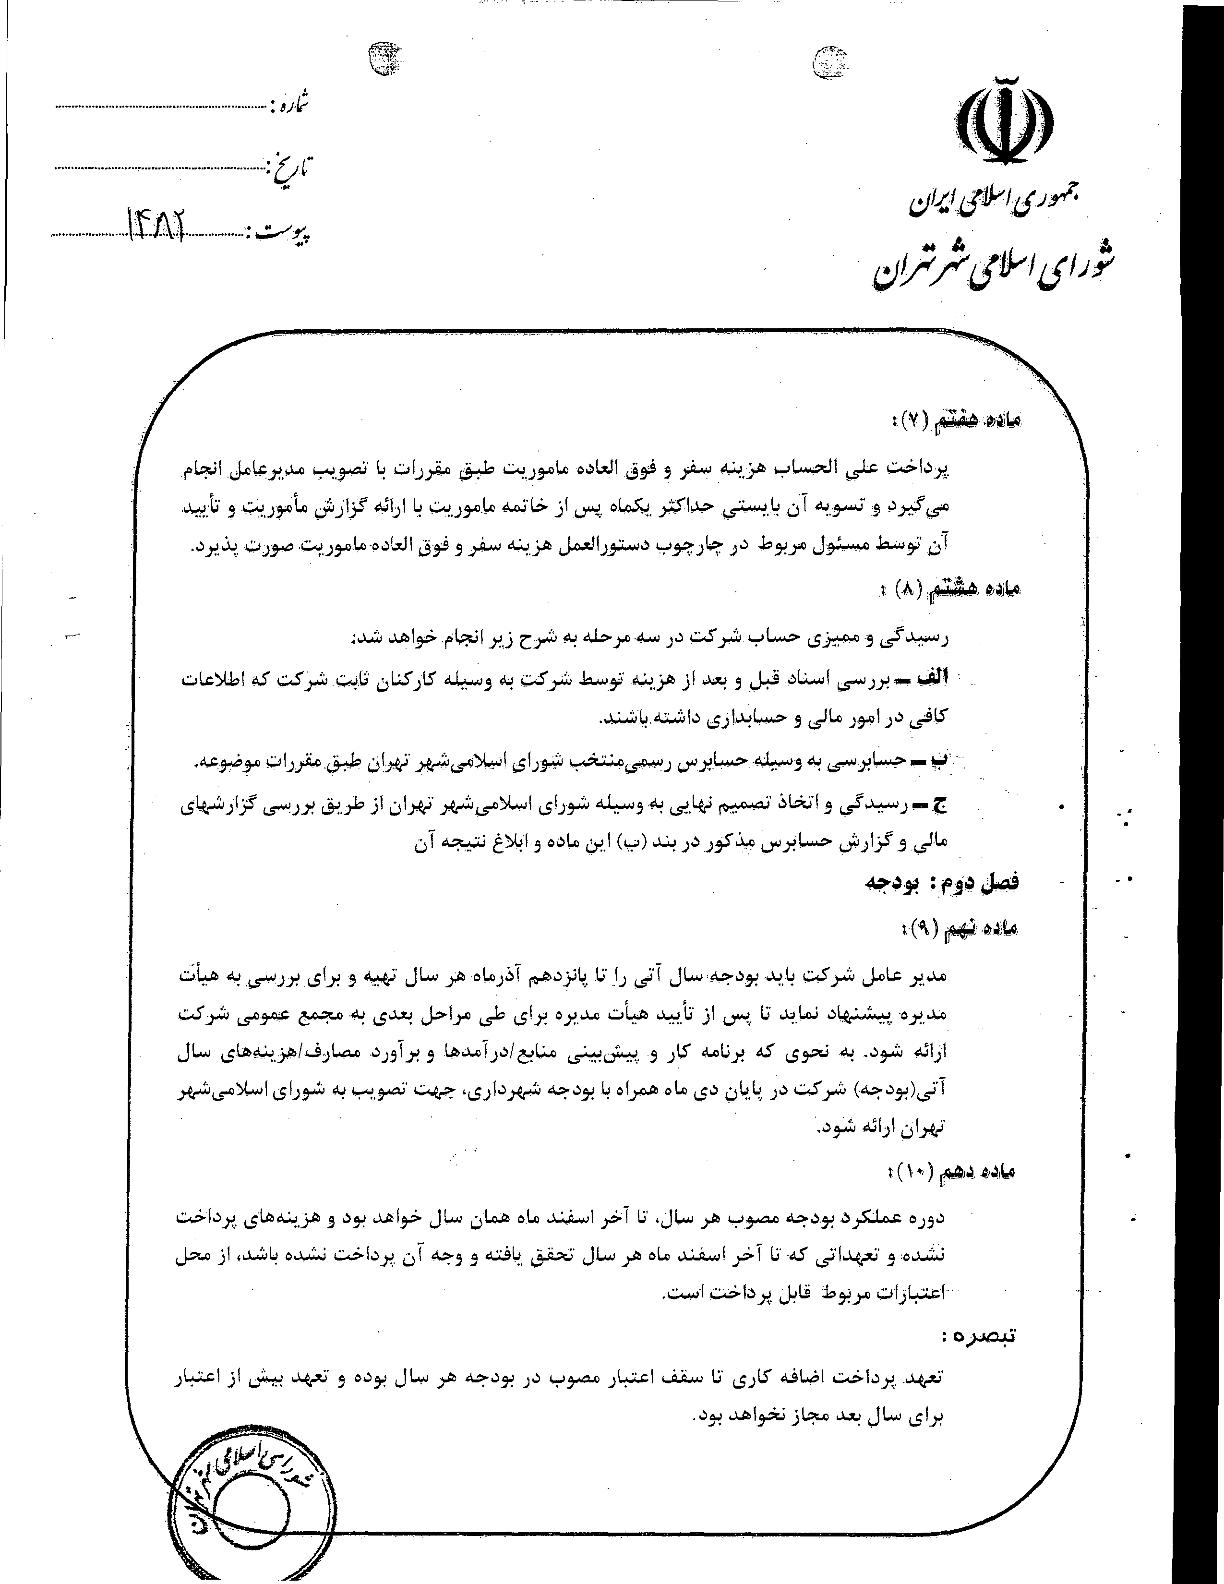 جمهوری اسلامی ایران
شورای اسلامی شهر تهران
شماره :
تاریخ :
پیوست : ۱۴۸۲
ماده هفتم (۷):
پرداخت علی الحساب هزینه سفر و فوق العاده ماموریت طبق مقررات با تصویب مدیرعامل انجام
می‌گیرد و تسویه آن بایستی حداکثر یکماه پس از خاتمه ماموریت با ارائه گزارش مأموریت و تأیید
آن توسط مسئول مربوط در چارچوب دستورالعمل هزینه سفر و فوق العاده ماموریت صورت پذیرد.
ماده هشتم (۸) :
رسیدگی و ممیزی حساب شرکت در سه مرحله به شرح زیر انجام خواهد شد:
الف – بررسی اسناد قبل و بعد از هزینه توسط شرکت به وسیله کارکنان ثابت شرکت که اطلاعات
کافی در امور مالی و حسابداری داشته باشند.
ب – حسابرسی به وسیله حسابرس رسمی‌منتخب شورای اسلامی‌شهر تهران طبق مقررات موضوعه.
ج – رسیدگی و اتخاذ تصمیم نهایی به وسیله شورای اسلامی‌شهر تهران از طریق بررسی گزارشهای
مالی و گزارش حسابرس مذکور در بند (ب) این ماده و ابلاغ نتیجه آن
فصل دوم : بودجه
ماده نهم (۹):
مدیر عامل شرکت باید بودجه سال آتی را تا پانزدهم آذرماه هر سال تهیه و برای بررسی به هیأت
مدیره پیشنهاد نماید تا پس از تأیید هیأت مدیره برای طی مراحل بعدی به مجمع عمومی شرکت
ارائه شود. به نحوی که برنامه کار و پیش‌بینی منابع/درآمدها و برآورد مصارف/هزینه‌های سال
آتی(بودجه) شرکت در پایان دی ماه همراه با بودجه شهرداری، جهت تصویب به شورای اسلامی‌شهر
تهران ارائه شود.
ماده دهم (۱۰):
دوره عملکرد بودجه مصوب هر سال، تا آخر اسفند ماه همان سال خواهد بود و هزینه‌های پرداخت
نشده و تعهداتی که تا آخر اسفند ماه هر سال تحقق یافته و وجه آن پرداخت نشده باشد، از محل
اعتبارات مربوط قابل پرداخت است.
تبصره :
تعهد پرداخت اضافه کاری تا سقف اعتبار مصوب در بودجه هر سال بوده و تعهد بیش از اعتبار
برای سال بعد مجاز نخواهد بود.
شورای اسلامی شهر تهران